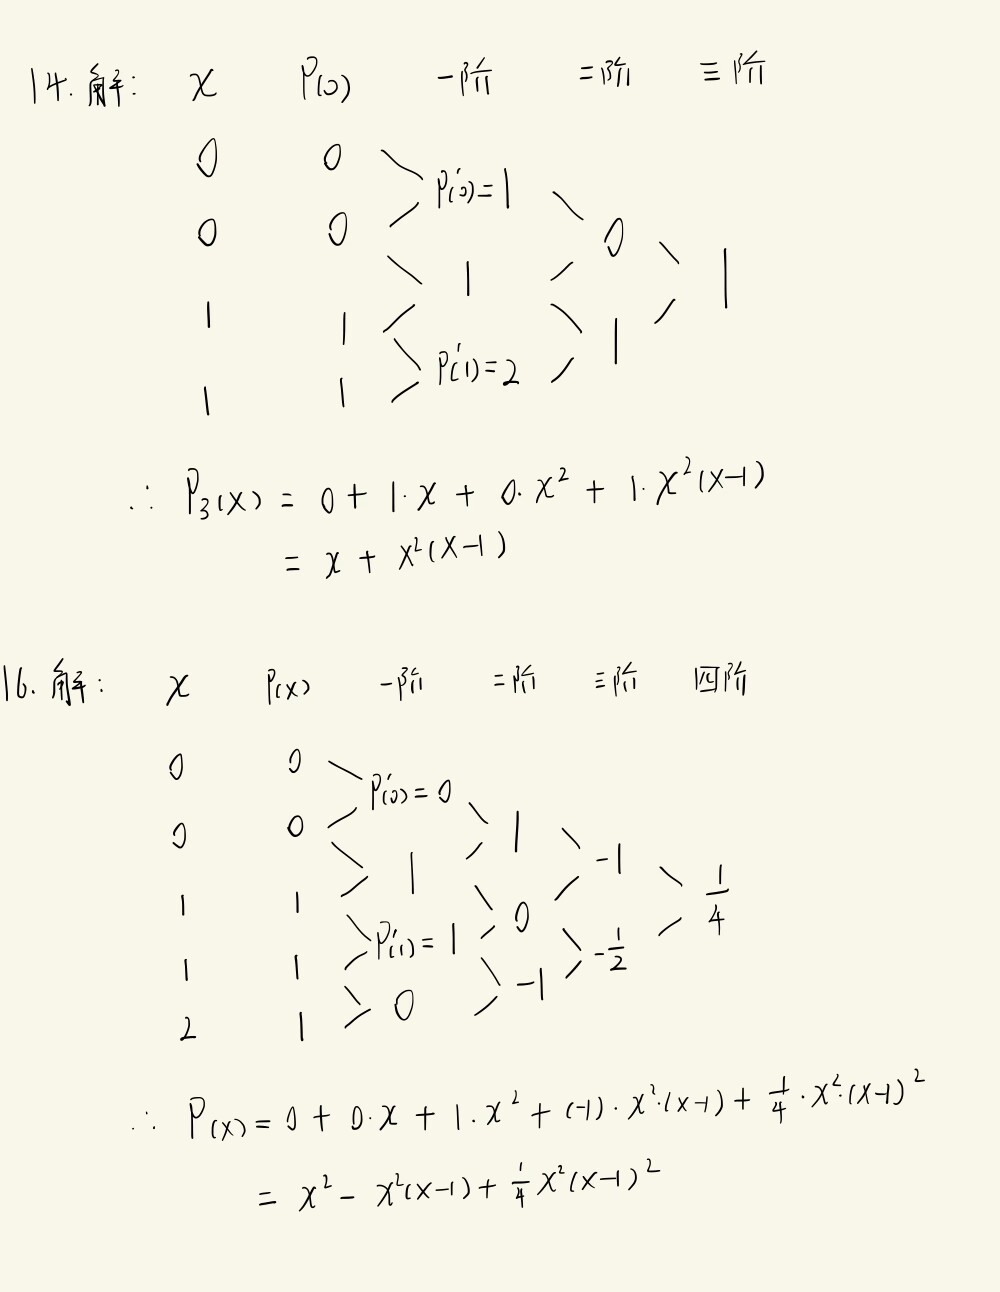 14. 解: x P(0) 一阶 二阶 三阶
0 0
P'(0)=1
0 0 0
1 1
1 1 1
P'(1)=2
1 1
∴ P₃(x) = 0 + 1·x + 0·x² + 1·x²(x-1)
= x + x²(x-1)
16. 解: x P(x) 一阶 二阶 三阶 四阶
0 0
P'(0)=0
0 0 1
1 -1
1 1 0 1/4
P'(1)=1 -1/2
1 1 -1
0
2 1
∴ P(x) = 0 + 0·x + 1·x² + (-1)·x²·(x-1) + 1/4·x²·(x-1)²
= x² - x²(x-1) + 1/4 x²(x-1)²